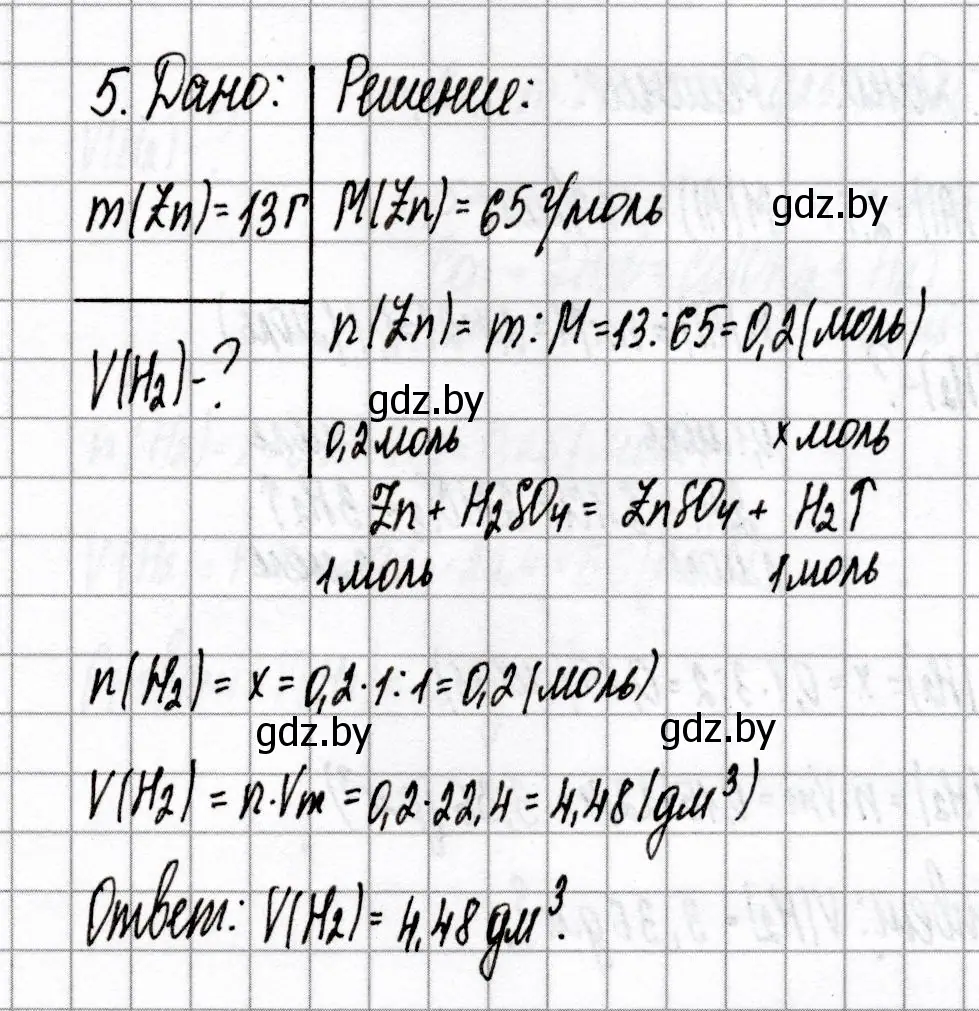 5. Дано:
Решение:
m(Zn)=13г
M(Zn) = 65 г/моль
gdz.by
n(Zn)= m:M=13:65=0,2(моль)
V(H₂)-?
gdz.by
0,2моль x моль
Zn + H₂SO₄ = ZnSO₄ + H₂↑
1моль 1моль
n(H₂) = x = 0,2·1:1=0,2(моль)
gdz.by gdz.by
V(H₂) = n·Vm =0,2·22,4 = 4,48(дм³)
Ответ: V(H₂)= 4,48 дм³.